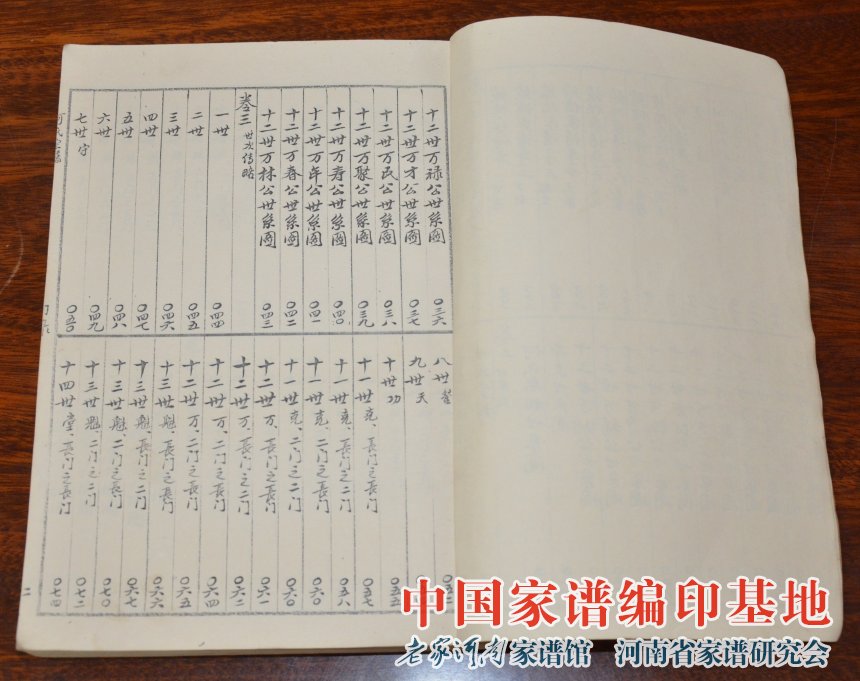 十二世万禄公世系图 〇三六
十二世万才公世系图 〇三七
十二世万民公世系图 〇三八
十二世万聚公世系图 〇三九
十二世万寿公世系图 〇四〇
十二世万年公世系图 〇四一
十二世万春公世系图 〇四二
十二世万林公世系图 〇四三
卷三 世次传略
一世 〇四四
二世 〇四五
三世 〇四六
四世 〇四七
五世 〇四八
六世 〇四九
七世守 〇五〇
八世
九世天
十世功 〇五五
十一世克、長门之長门 〇五七
十一世克、長门之二门 〇五八
十一世克、二门之長门 〇六〇
十一世克、二门之二门 〇六〇
十二世万、長门之長门 〇六一
十二世万、長门之二门 〇六二
十二世万、二门之長门 〇六四
十二世万、二门之二门 〇六五
十三世魁、長门之長门 〇六六
十三世魁、長门之二门 〇六七
十三世魁、二门之長门 〇七〇
十三世魁、二门之二门 〇七二
十四世堂、長门之長门 〇七四
二
中国家谱编印基地
老家河南家谱馆 河南省家谱研究会